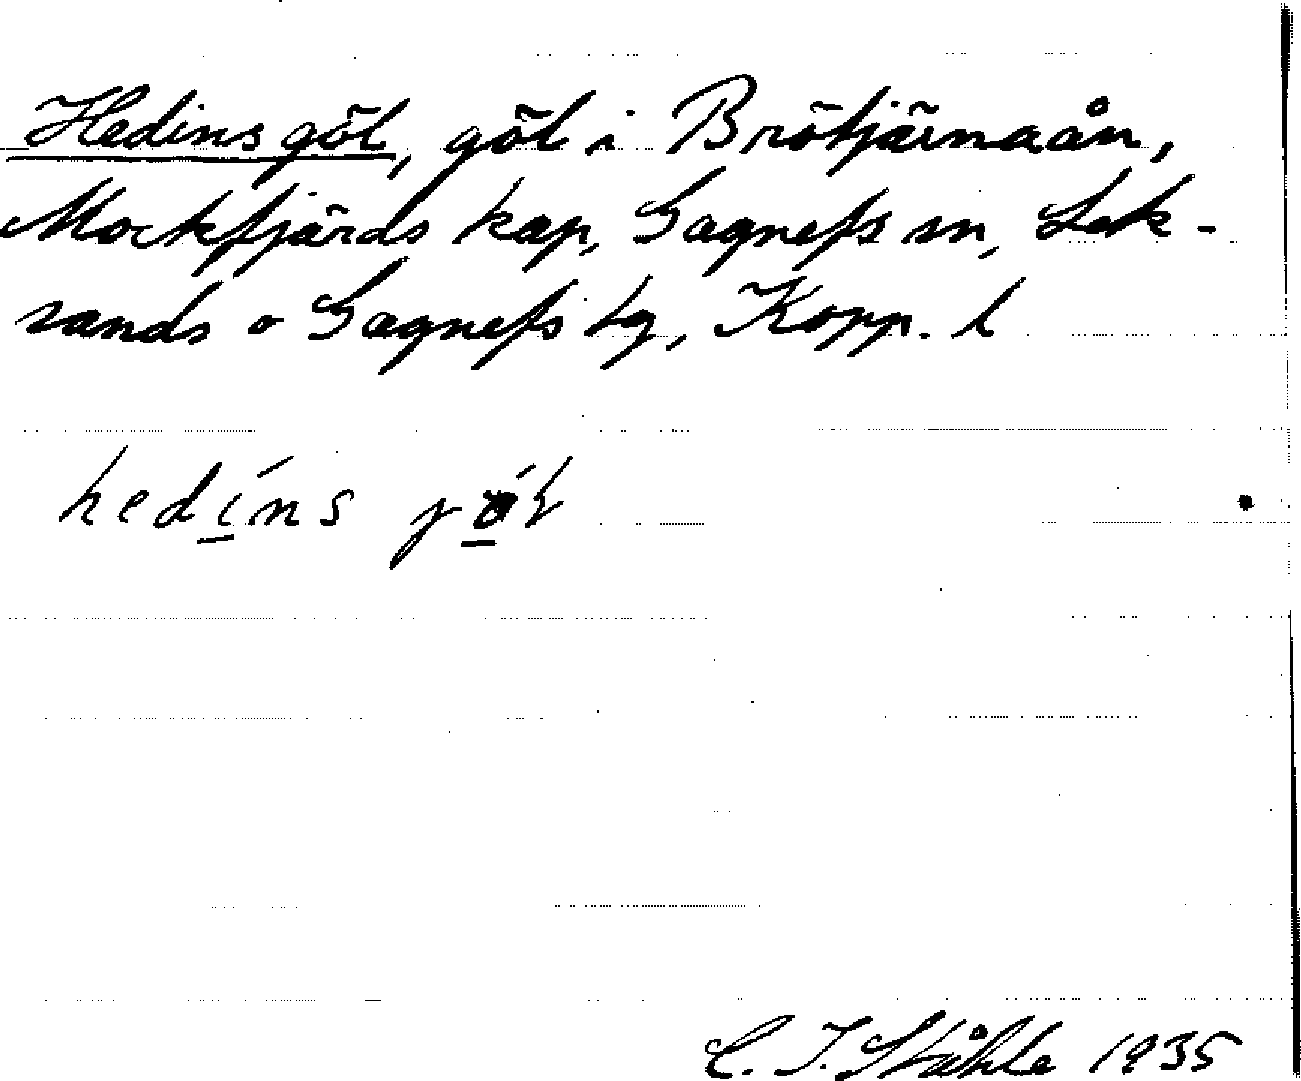 Hedinsgöl, göl i Brötjärnaån,
Mockfjärds kap, Gagnefs sn, Lek-
sands o Gagnefs tg, Kopp. l
hedins
C. I. Ståhle 1935